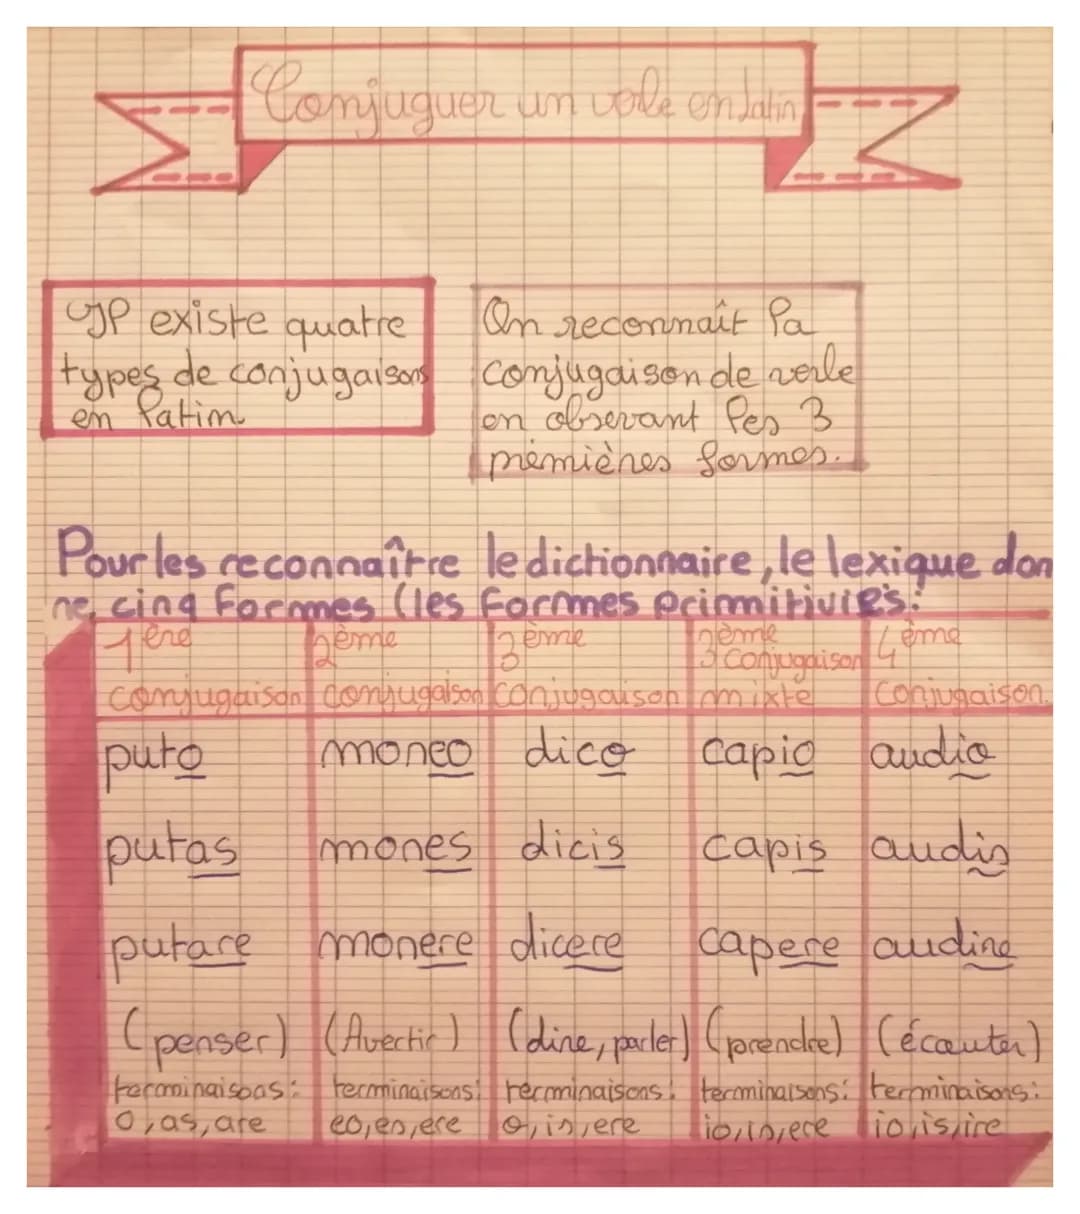 Conjuguer un verbe en latin
Il existe quatre
types de conjugaisons
en latin
On reconnaît la
conjugaison de verbe
en observant les 3
premières formes.
Pour les reconnaître le dictionnaire, le lexique don
ne, cinq formmes (les formmes primmitivies:
1ère conjugaison
2ème conjugaison
3ème conjugaison
3ème conjugaison mixte
4ème conjugaison.
puto moneo dico capio audio
putas mones dicis capis audis
putare monere dicere capere audire
(penser) (Avertir) (dire, parler) (prendre) (écouter)
terminaisons: terminaisons: terminaisons: terminaisons: terminaisons:
o, as, are eo, es, ere o, is, ere io, is, ere io, is, ire